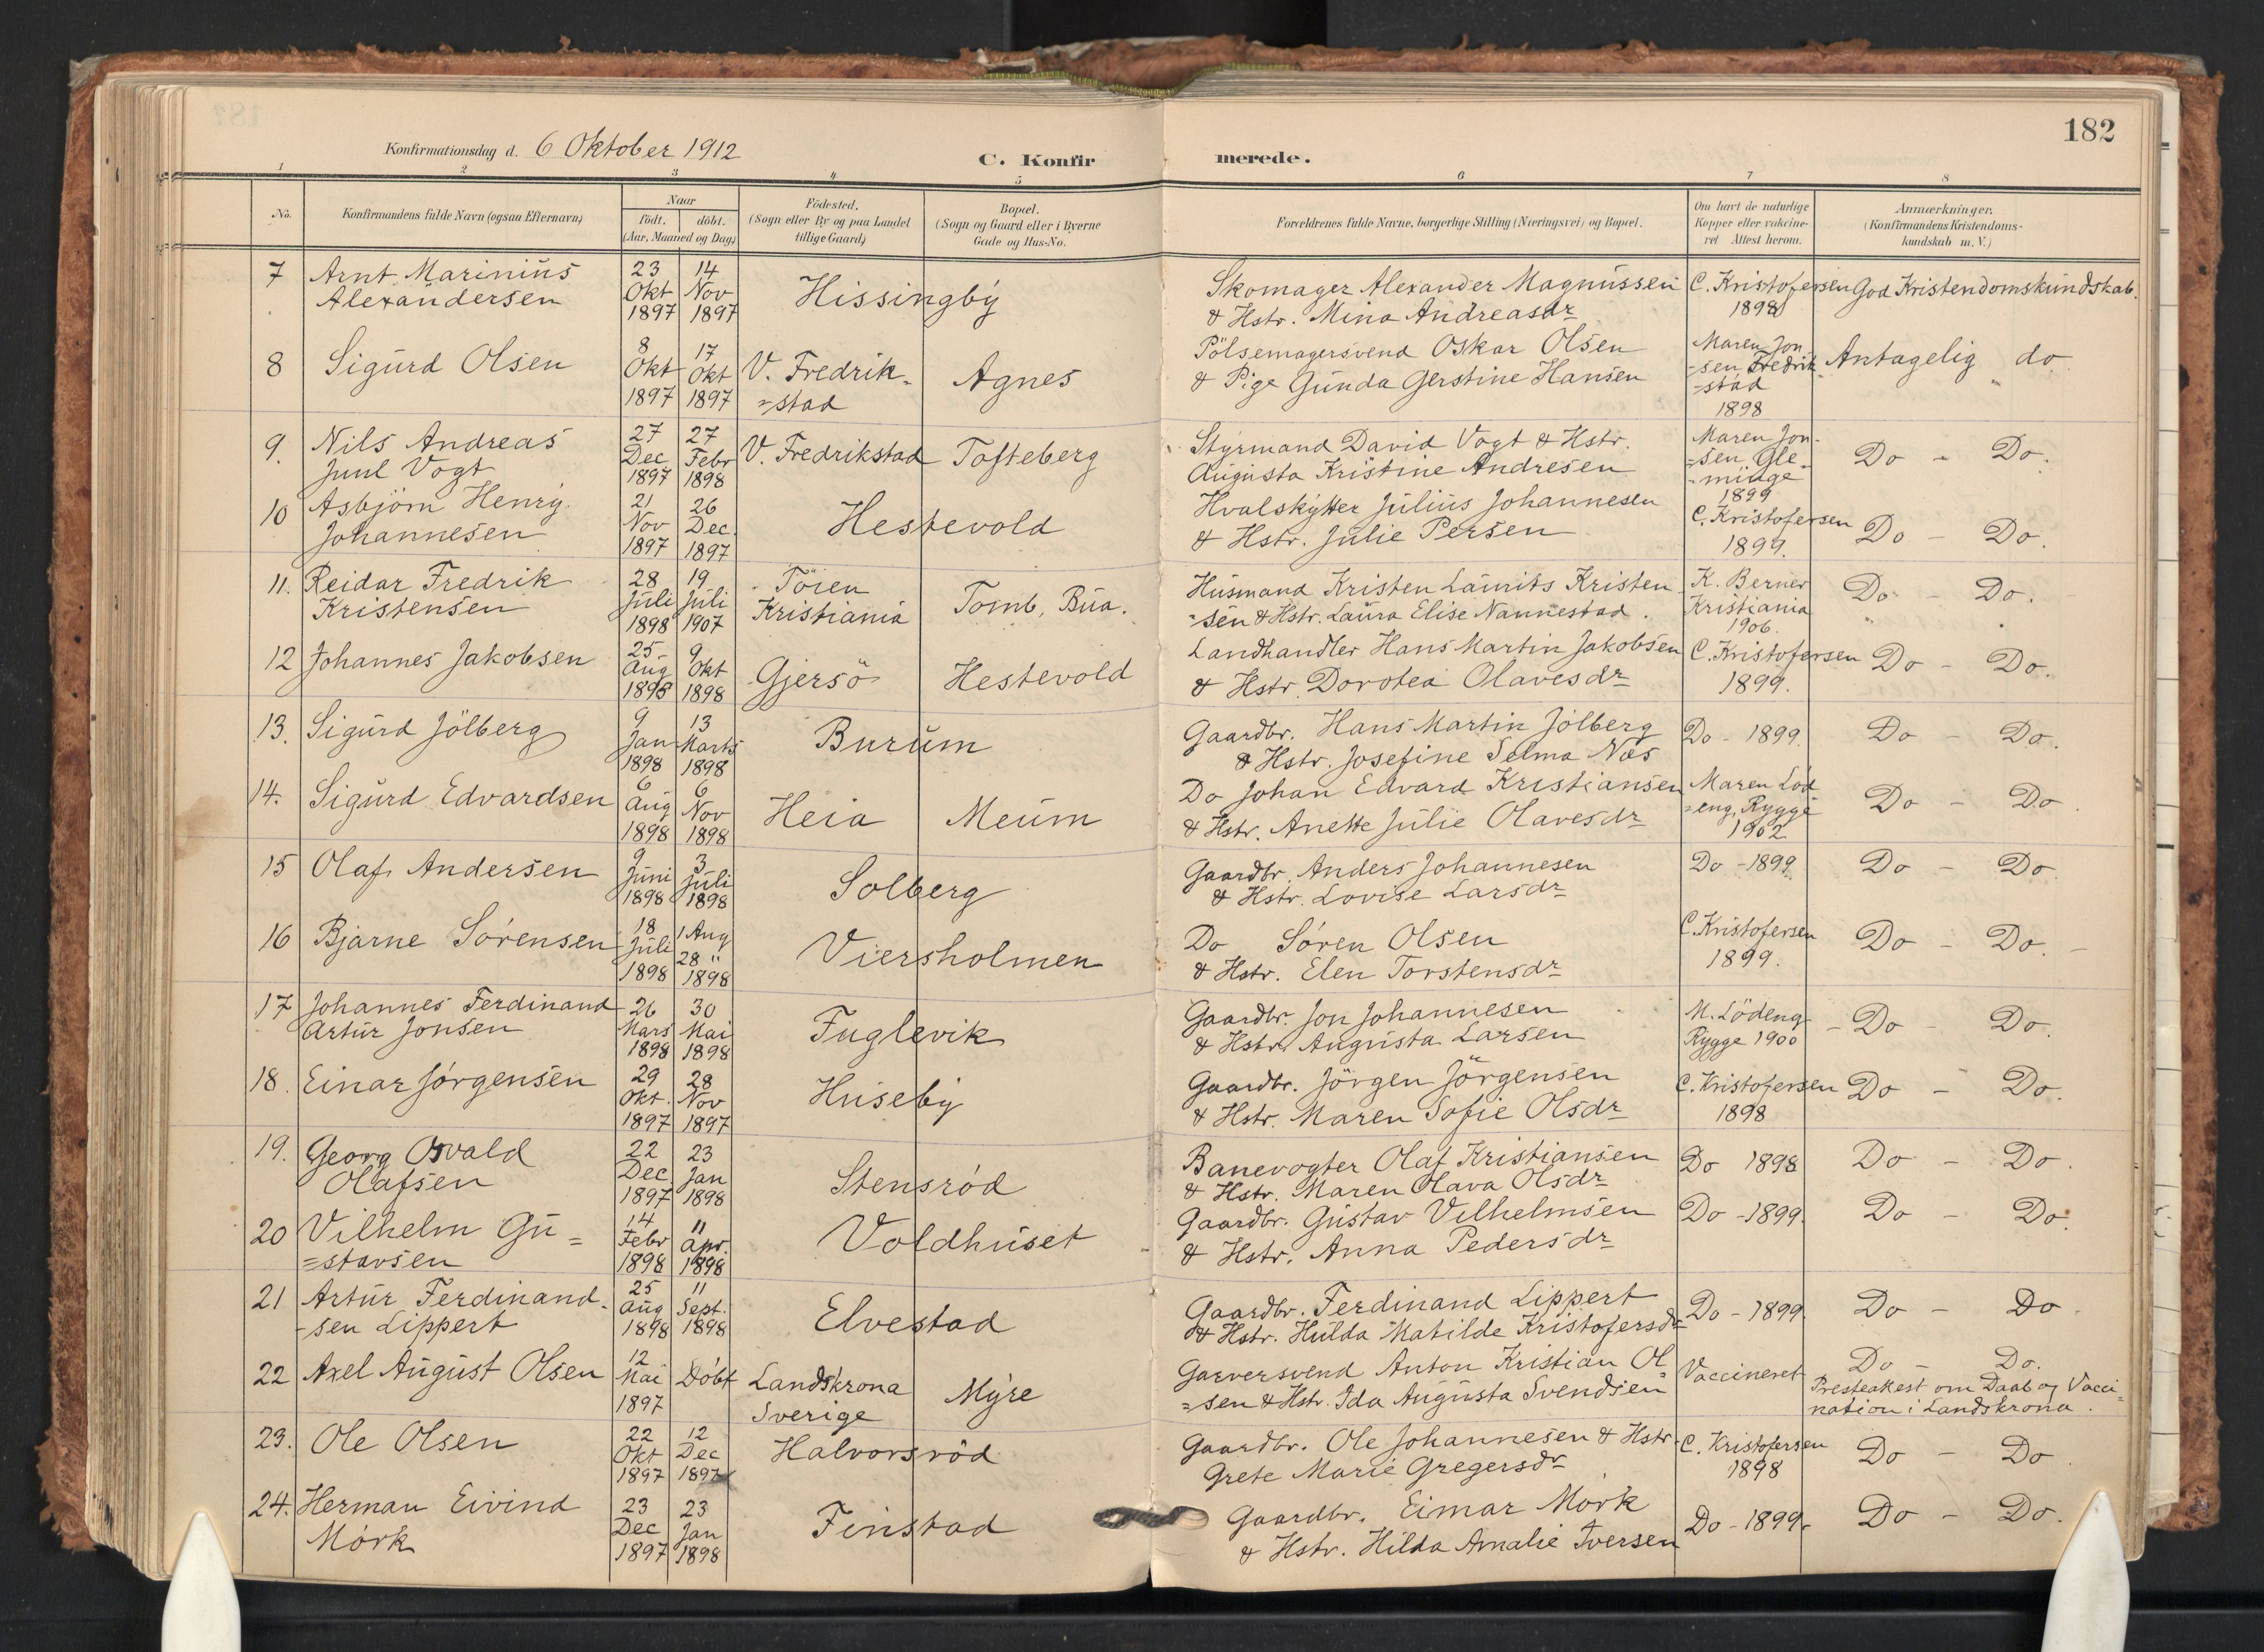 182
Konfirmationsdag d. 6 Oktober 1912
C. Konfirmerede.
1 2 3 4 5 6 7 8
No. Konfirmandens fulde Navn (ogsaa Efternavn) Naar födt. döbt. (Aar, Maaned og Dag) Födested. (Sogn eller By og paa Landet tillige Gaard) Bopæl. (Sogn og Gaard eller i Byerne Gade og Hus-No. Forældrenes fulde Navne, borgerlige Stilling (Næringsvei) og Bopæl. Om havt de naturlige Kopper eller vakcineret Attest herom. Anmærkninger. (Konfirmandens Kristendomskundskab m. V.)
7 Arnt Marinius Alexandersen 23 Okt 1897 14 Nov 1897 Hissingby Skomager Alexander Magnussen & Hstr. Mina Andreasdr C. Kristofersen 1898 God Kristendomskundskab.
8 Sigurd Olsen 8 Okt 1897 17 Okt 1897 V. Fredrik=stad Agnes Pölsemagersvend Oskar Olsen & Pige Gunda Gerstine Hansen Maren Jon-sen Fredrik-stad 1898 Antagelig do
9. Nils Andreas Juul Vogt 27 Dec 1897 27 Febr 1898 V. Fredrikstad Tofteberg Styrmand David Vogt & Hstr. Augusta Kristine Andresen Maren Jon-sen Gle-minge 1899 Do - Do.
10 Asbjörn Henry Johannesen 21 Nov 1897 26 Dec. 1897 Hestevold Hvalskytter Julius Johannesen & Hstr. Julie Persen C. Kristofersen 1899. Do - Do.
11. Reidar Fredrik Kristensen 28 Juli 1898 19 Juli 1907 Töien Kristiania Tomb, Bua. Husmand Kristen Laurits Kristen=sen & Hstr. Laura Elise Nannestad. K. Berner Kristiania 1906. Do - Do.
12 Johannes Jakobsen 25 Aug 1898 9 Okt 1898 Gjersö Hestevold Landhandler Hans Martin Jakobsen & Hstr. Dorotea Olavesdr C. Kristofersen 1899. Do - Do.
13. Sigurd Jölberg 9 Jan 1898 13 Marts 1898 Burum Gaardbr. Hans Martin Jölberg & Hstr. Josefine Selma Næs Do - 1899. Do - Do.
14. Sigurd Edvardsen 6 Aug 1898 6 Nov 1898 Heia Meum Do Johan Edvard Kristiansen & Hstr. Anette Julie Olavesdr Maren Löd=eng, Rygge 1902 Do - Do.
15 Olaf Andersen 9 Juni 1898 3 Juli 1898 Solberg Gaardbr. Anders Johannesen & Hstr. Lovise Larsdr Do - 1899 Do - Do.
16 Bjarne Sörensen 18 Juli 1898 1 Aug 28 " 1898 Viersholmen Do Sören Olsen & Hstr. Elen Torstensdr C. Kristofersen 1899. Do - Do. -
17 Johannes Ferdinand Artur Jonsen 26 Mars 1898 30 Mai 1898 Fuglevik Gaardbr. Jon Johannesen & Hstr. Augusta Larsen M. Lödeng Rygge 1900 - Do - Do.
18. Einar Jörgensen 29 Okt. 1897 28 Nov 1897 Huseby Gaardbr. Jörgen Jörgensen & Hstr. Maren Sofie Olsdr C. Kristofersen 1898 Do - Do.
19. Georg Osvald Olafsen 22 Dec 1897 23 Jan 1898 Stensröd Banevogter Olaf Kristiansen & Hstr. Maren Olava Olsdr Do 1898 Do - Do.
20 Vilhelm Gu=stavsen 14 Febr 1898 11 Apr. 1898 Voldhuset Gaardbr. Gustav Vilhelmsen & Hstr. Anna Pedersdr Do - 1899. Do - Do.
21 Artur Ferdinand-sen Lippert 25 Aug 1898 11 Sept. 1898 Elvestad Gaardbr. Ferdinand Lippert & Hstr. Hulda Matilde Kristofersdr Do - 1899. Do - Do.
22 Axel August Olsen 12 Mai 1897 Döbt Landskrona Sverige Myre Garversvend Anton Kristian Ol=sen & Hstr. Ida Augusta Svendsen Vaccineret Do - Do. Presteattest om Daab og Vacci=nation i Landskrona.
23. Ole Olsen 22 Okt 1897 12 Dec 1897 Halvorsröd Gaardbr. Ole Johannesen & Hstr. Grete Marie Gregersdr C. Kristofersen 1898 Do - Do.
24. Herman Eivind Mörk 23 Dec 1897 23 Jan 1898 Finstad Gaardbr. Eimar Mörk & Hstr. Hilda Amalie Iversen Do - 1899. Do - Do.